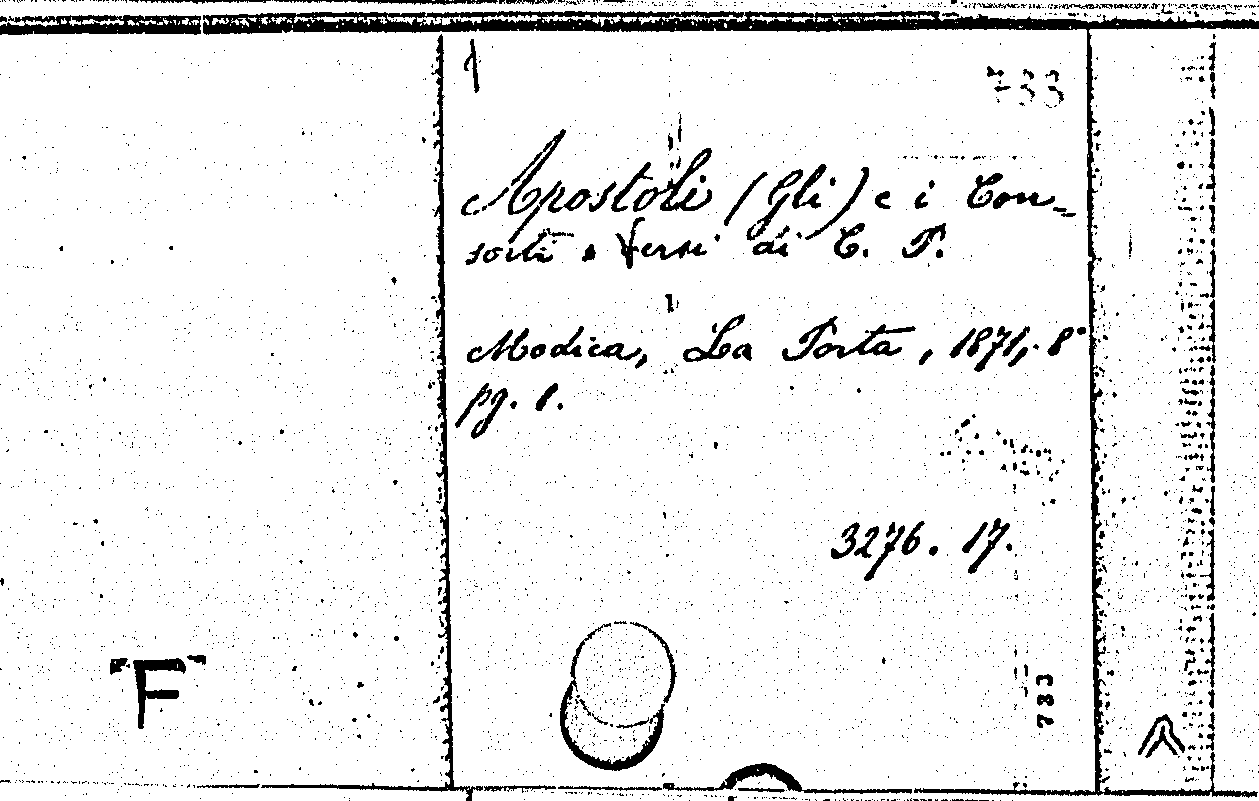 1
733
Apostoli (Gli) e i Con-
sorti : Versi di C. P.
Modica, La Porta, 1871, 8°
pg. 8.
3276. 17.
733
F